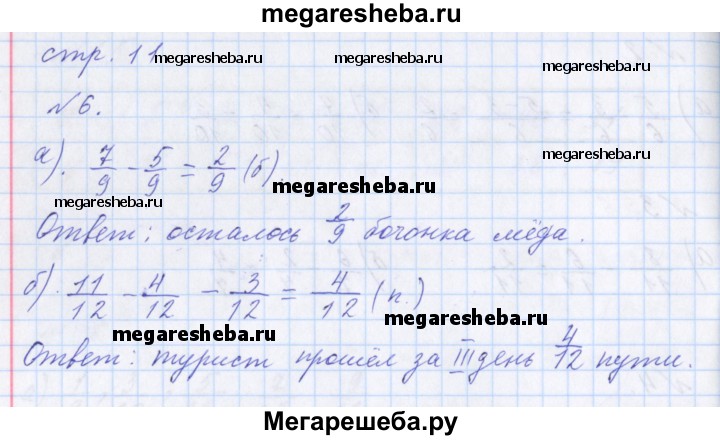 megaresheba.ru
стр. 11
megaresheba.ru megaresheba.ru
№6.
а). 7/9 - 5/9 = 2/9 (б).
megaresheba.ru
megaresheba.ru
Ответ: осталось 2/9 бочонка мёда.
megaresheba.ru
б). 11/12 - 4/12 - 3/12 = 4/12 (п.)
megaresheba.ru
megaresheba.ru
Ответ: турист прошёл за III день 4/12 пути.
Мегарешеба.ру